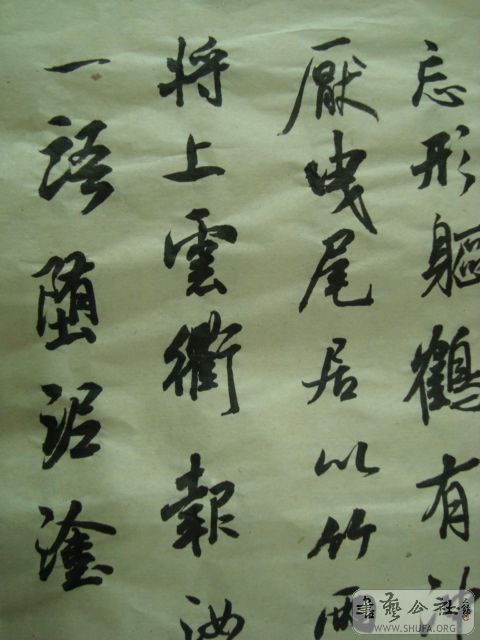 忘形軀鶴有
厭曳尾居以竹兩
将上雲衢報汝
一語墮泥塗
書藝公社
WWW.SHUFA.ORG